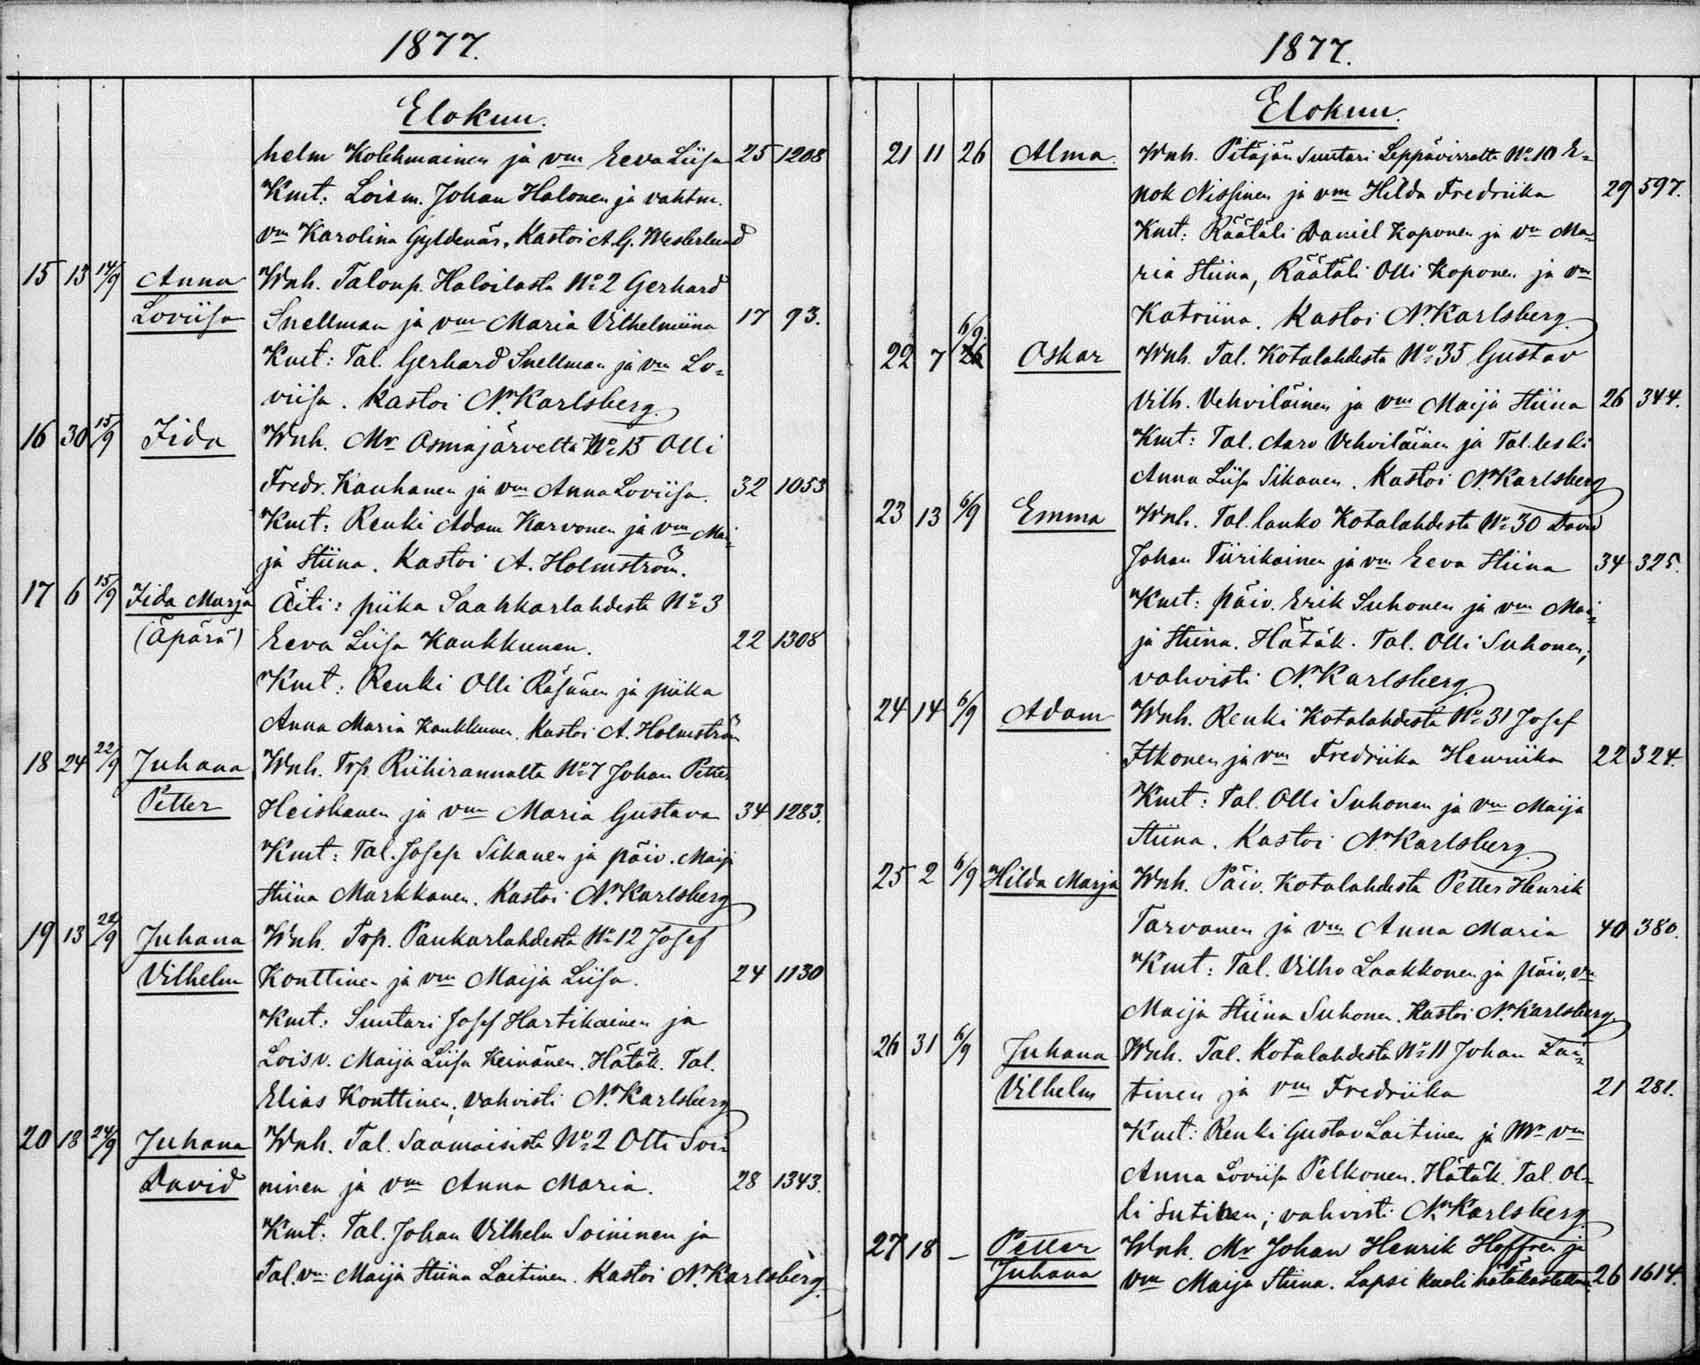 1877.
Elokuu.
helm Kolehmainen ja vm Eeva Liisa 25 1208
Kmt: Loism. Johan Halonen ja vahtm.
vm Karolina Gyldenär. Kastoi A. G. Westerlund
15 13 14/9 Anna Wnh. Taloup. Haloilasta No 2 Gerhard
Loviisa Snellman ja vm Maria Vilhelmiina 17 93.
Kmt: Tal. Gerhard Snellman ja vm Lo-
viisa. Kastoi N. Karlsberg.
16 30 15/9 Iida Wnh. Mr Osmajärveltä No 13 Olli
Fredr. Kauhanen ja vm Anna Loviisa. 32 1053
Kmt: Renki Adam Karvonen ja vm Mai-
ja Stiina. Kastoi A. Holmström.
17 6 15/9 Iida Marja Äiti: piika Saahkarlahdesta No 3
(Äpärä) Eeva Liisa Kaukkunen. 22 1308
Kmt: Renki Olli Räsänen ja piika
Anna Maria Kaukkunen. Kastoi A. Holmström
18 24 22/9 Juhana Wnh. Trp Riihirannalta No 7 Johan Petter
Petter Heiskanen ja vm Maria Gustava 34 1283.
Kmt: Tal. Josep Sikanen ja päiv. Maija
Stiina Markkanen. Kastoi N. Karlsberg
19 13 22/9 Juhana Wnh. Trp. Paukarlahdesta No 12 Josef
Vilhelm Konttinen ja vm Maija Liisa. 24 1130
Kmt: Suutari Josef Hartikainen ja
Loisv. Maija Liisa Keinänen. Hätäk. Tal.
Elias Konttinen; vahvisti N. Karlsberg
20 18 24/9 Juhana Wnh. Tal. Saamaisista No 2 Olli Soi-
David ninen ja vm Anna Maria. 28 1343.
Kmt: Tal. Johan Vilhelm Soininen ja
Tal. vm Maija Stiina Laitinen. Kastoi N. Karlsberg.
1877.
Elokuu.
21 11 26 Alma. Wnh. Pitäjän suutari Leppävirralta No 10 E-
nok Nissinen ja vm Hilda Fredriika 29 597.
Kmt: Räätäli Daniel Koponen ja vm Ma-
ria Stiina, Räätäli Olli Koponen ja vm
Katriina. Kastoi N. Karlsberg.
22 7 6/9 26 Oskar Wnh. Tal. Kotalahdesta No 35 Gustav
Vilh. Vehviläinen ja vm Maija Stiina 26 344.
Kmt: Tal. Aaro Vehviläinen ja Tal. leski
Anna Liisa Sikanen. Kastoi N. Karlsberg
23 13 6/9 Emma Wnh. Tal. lanko Kotalahdesta No 30 David
Johan Tiirikainen ja vm Eeva Stiina 34 325.
Kmt: päiv. Erik Suhonen ja vm Mai-
ja Stiina. Hätäk. Tal. Olli Suhonen;
vahvisti N. Karlsberg.
24 14 6/9 Adam Wnh. Renki Kotalahdesta No 31 Josef
Itkonen ja vm Fredriika Henriika 22 324.
Kmt: Tal. Olli Suhonen ja vm Maija
Stiina. Kastoi N. Karlsberg.
25 2 6/9 Hilda Marja Wnh. Päiv. Kotalahdesta Petter Henrik
Tarvanen ja vm Anna Maria 40 380.
Kmt: Tal. Vilho Laakkonen ja päiv. vm
Maija Stiina Suhonen. Kastoi N. Karlsberg
26 31 6/9 Juhana Wnh. Tal. Kotalahdesta No 11 Johan Lai-
Vilhelm tinen ja vm Fredriika 21 281.
Kmt: Renki Gustav Laitinen ja Mr vm
Anna Loviisa Pelkonen. Hätäk. Tal. Ol-
li Sutinen; vahvisti N. Karlsberg.
27 18 — Petter Wnh. Mr Johan Henrik Hoffren ja
Juhana vm Maija Stiina. Lapsi kuoli hätäkastettuna. 26 1614.